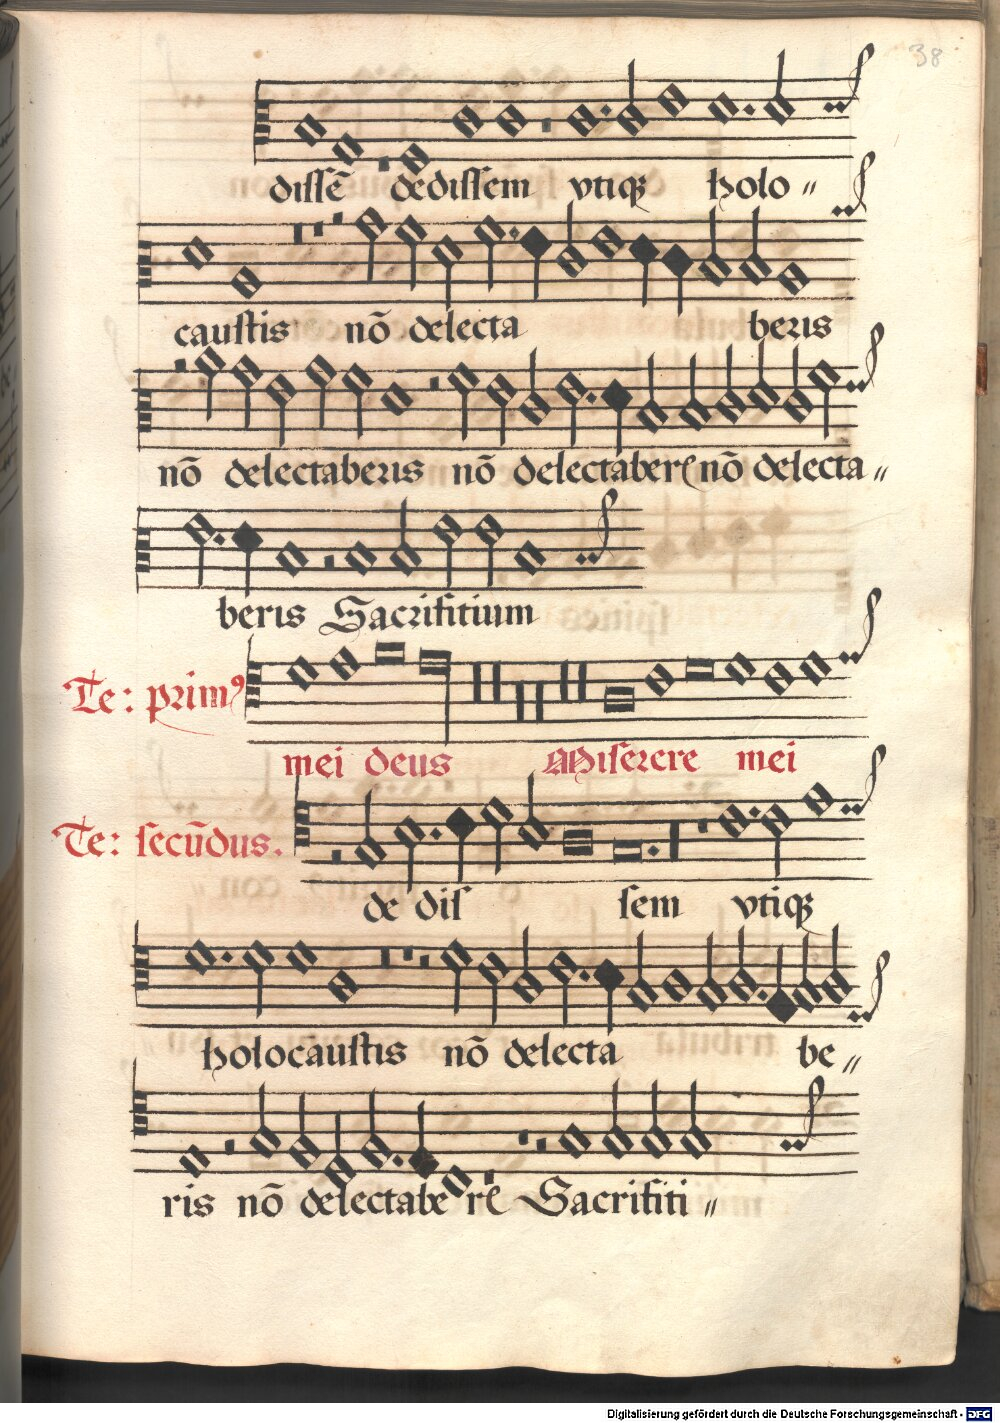 38
dissē dedissem vtiqꝫ holo〃
caustis nō delecta beris
nō delectaberis nō delectaberꝭ nō delecta〃
beris Sacrifitium
Te: primꝰ
mei deus Miserere mei
Te: secūdus.
de dis sem vtiqꝫ
holocaustis nō delecta be〃
ris nō delectabe rꝭ Sacrifiti〃
Digitalisierung gefördert durch die Deutsche Forschungsgemeinschaft - DFG